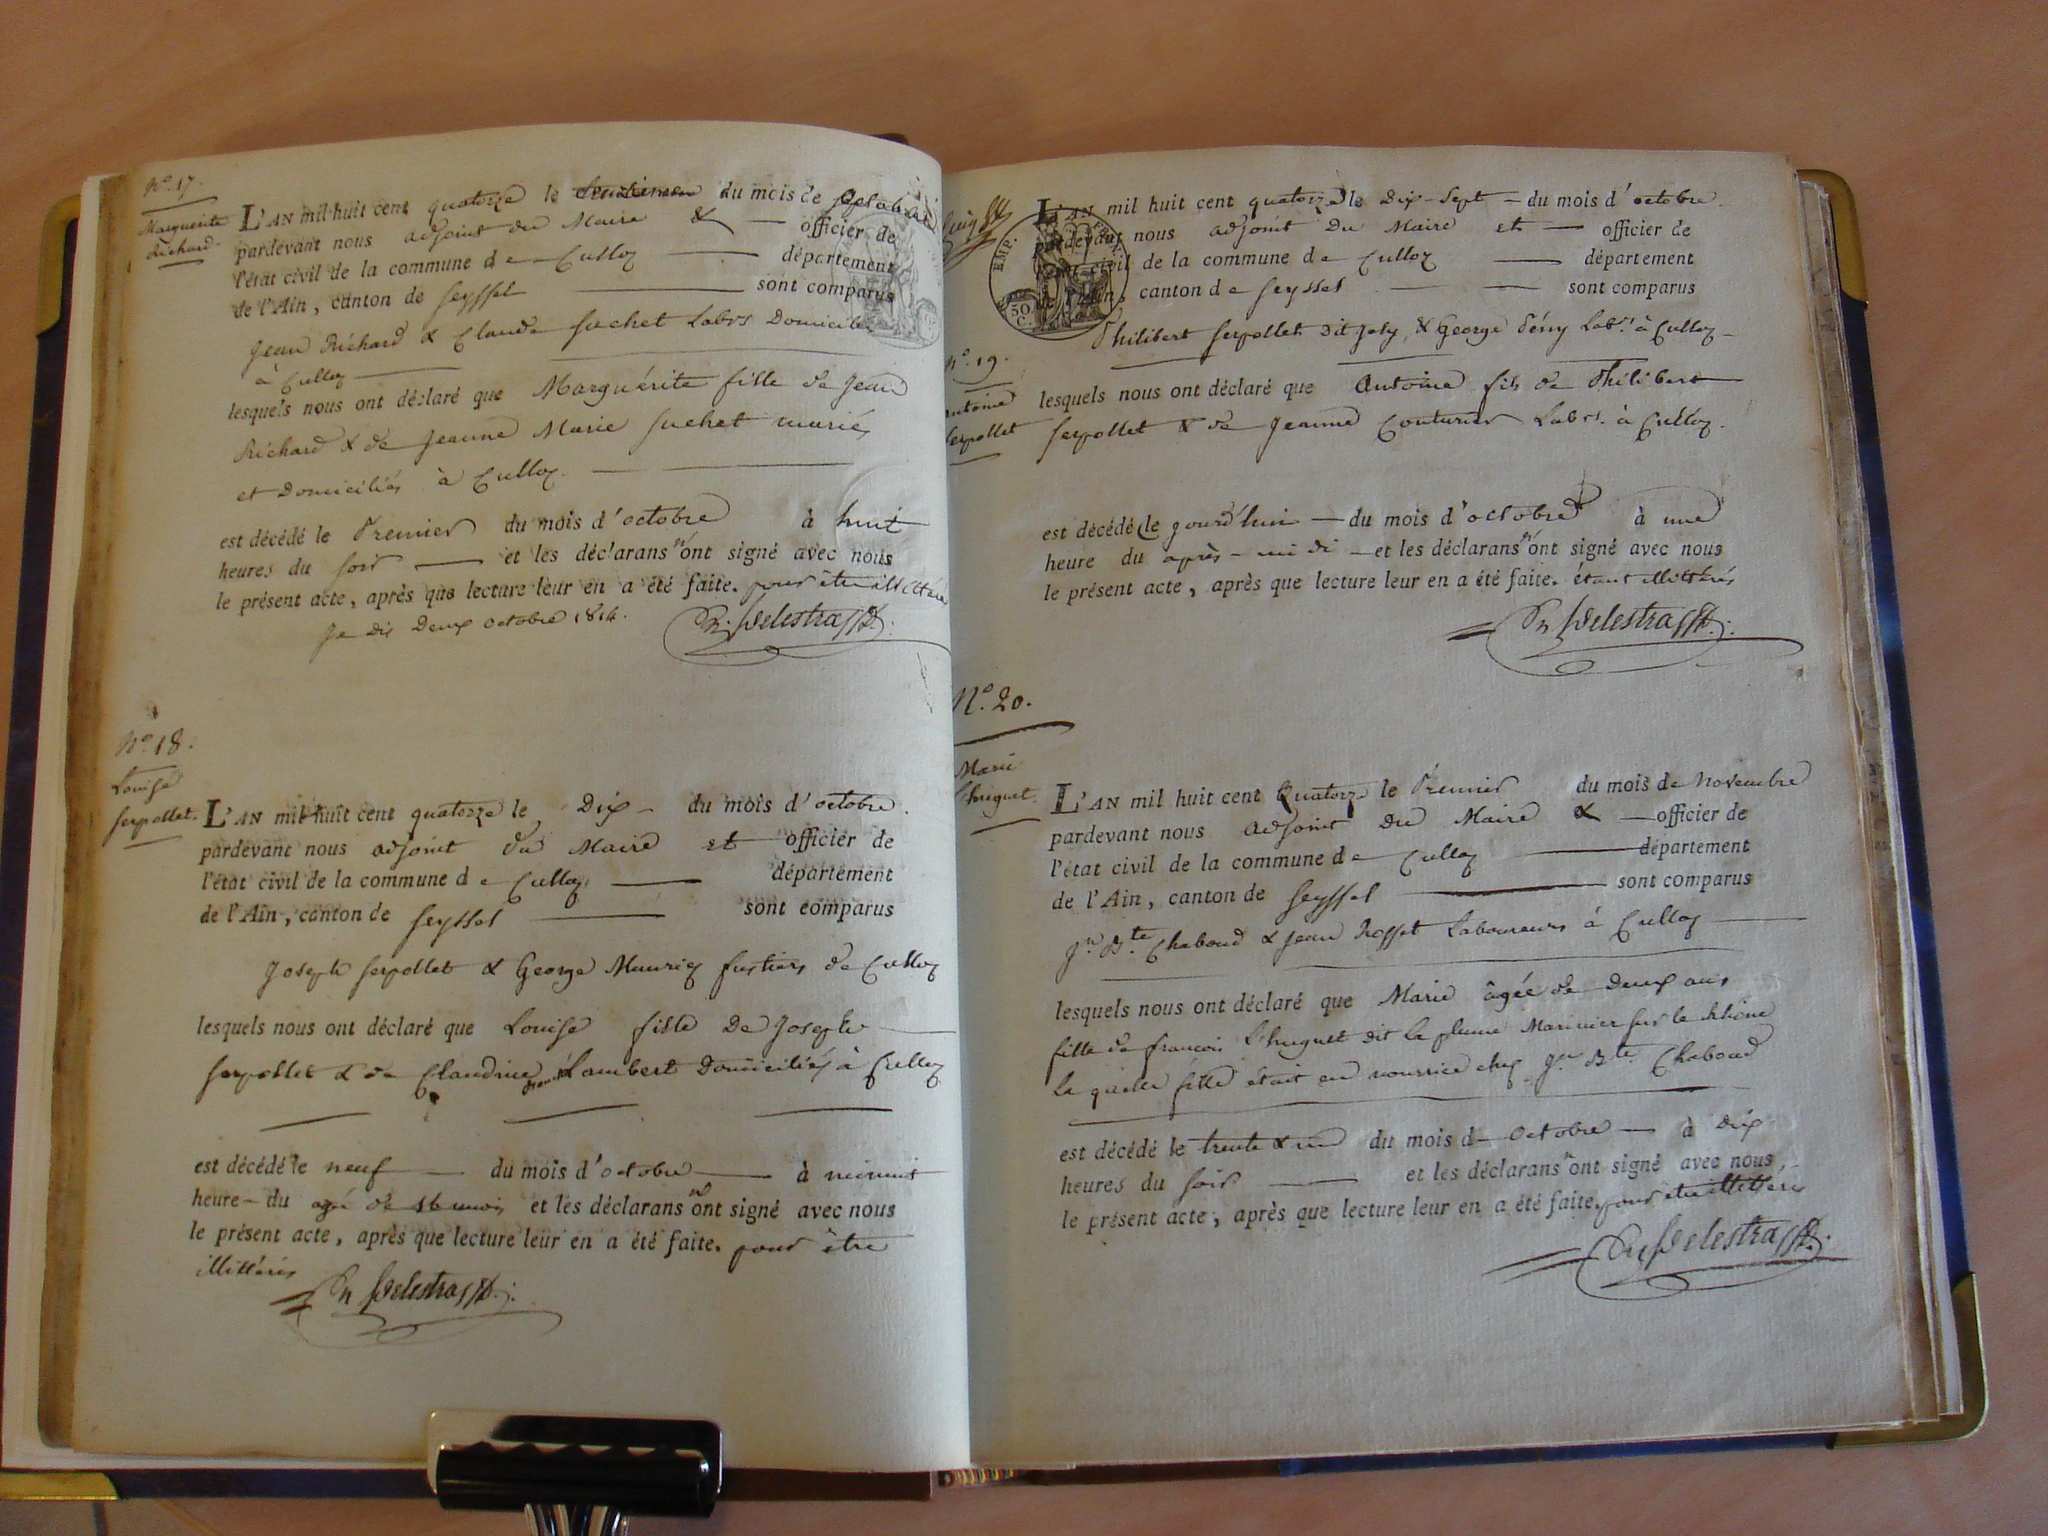 N.° 17.
Marguerite
Richard.
L'AN mil huit cent quatorze le du mois de
pardevant nous adjoint du Maire & officier de
l'état civil de la commune de Culloz département
de l'Ain, canton de Seyssel sont comparus
Jean Richard & Claude Suchet Labrs Domiciliés
à Culloz
lesquels nous ont déclaré que Marguérite fille de Jean
Richard & de Jeanne Marie Suchet mariés
et Domiciliés à Culloz.
est décédé le Premier du mois d'octobre à huit
heures du soir et les déclarans n'ont signé avec nous
le présent acte, après que lecture leur en a été faite. pour être illittérés
Je dis Deux octobre 1814.
N.° 18.
Louise
Serpollet.
L'AN mil huit cent quatorze le Dix du mois d'octobre.
pardevant nous adjoint du Maire et officier de
l'état civil de la commune de Culloz département
de l'Ain, canton de Seyssel sont comparus
Joseph Serpollet & George Mauriz fustiers de Culloz
lesquels nous ont déclaré que Louise fille De Joseph
Serpollet & de Claudine Lambert Domiciliés à Culloz
est décédé le neuf du mois d'octobre à minuit
heure du agée de 16 mois et les déclarans n'ont signé avec nous
le présent acte, après que lecture leur en a été faite. pour être
illittérés
Pre Delestra
EMP.
50
C.
N.° 19.
antoine
Serpollet
L'AN mil huit cent quatorze le Dix-Sept du mois d'octobre.
pardevant nous adjoint Du Maire et officier de
l'état civil de la commune de Culloz département
de l'Ain, canton de Seyssel sont comparus
Philibert Serpollet Dit Joly, & George Labrs à Culloz
lesquels nous ont déclaré que Antoine fils de Philibert
Serpollet & de Jeanne Couturier Labrs. à Culloz.
est décédé le jourd'hui du mois d'octobre à une
heure du après-midi et les déclarans n'ont signé avec nous
le présent acte, après que lecture leur en a été faite. étant illittérés
N.° 20.
Marie
L'huguet.
L'AN mil huit cent Quatorze le Premier du mois de Novembre
pardevant nous adjoint Du Maire & officier de
l'état civil de la commune de Culloz département
de l'Ain, canton de Seyssel sont comparus
Jn Bte. Chaboud & Jean Rosset Laboureurs à Culloz
lesquels nous ont déclaré que Marie âgée de Deux ans
fille de francois L'huguet dit la plume Marinier sur le Rhône
la quelle fille était en nourrice chez Jn Bte. Chaboud
est décédé le trente & un du mois d'octobre à Dix
heures du soir et les déclarans n'ont signé avec nous,
le présent acte, après que lecture leur en a été faite. pour être illittérés